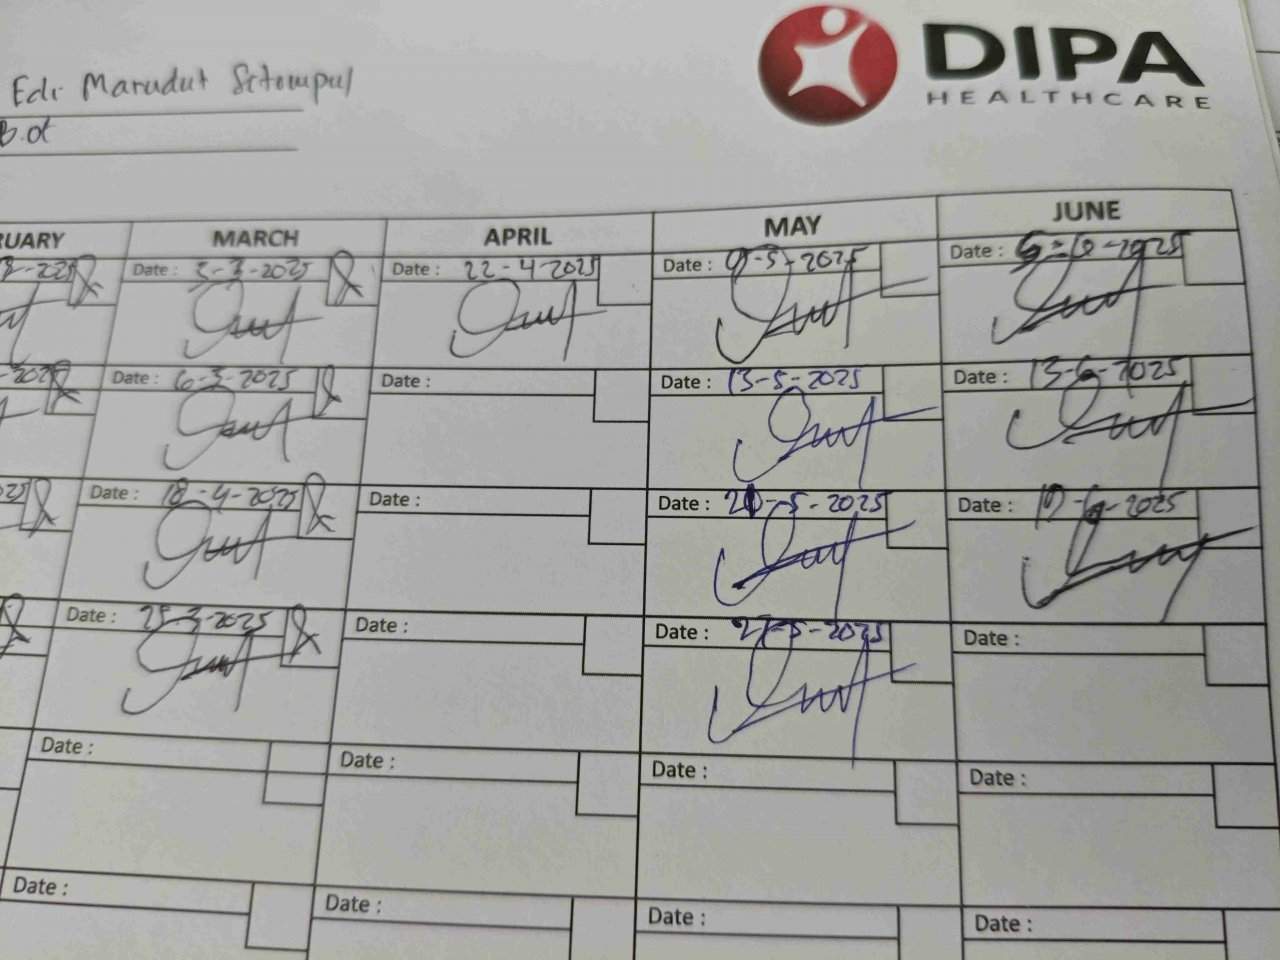 DIPA
HEALTHCARE
Edi Marudut Sitompul
MARCH APRIL MAY JUNE
Date : 5-3-2025 Date : 22-4-2025 Date : -5-2025 Date : -2025
Date : 6-3-2025 Date : Date : 13-5-2025 Date : 13-6-2025
Date : 18-4-2025 Date : Date : -5-2025 Date : -2025
Date : 25-3-2025 Date : Date : 27-5-2025 Date :
Date : Date : Date : Date :
Date : Date : Date : Date :